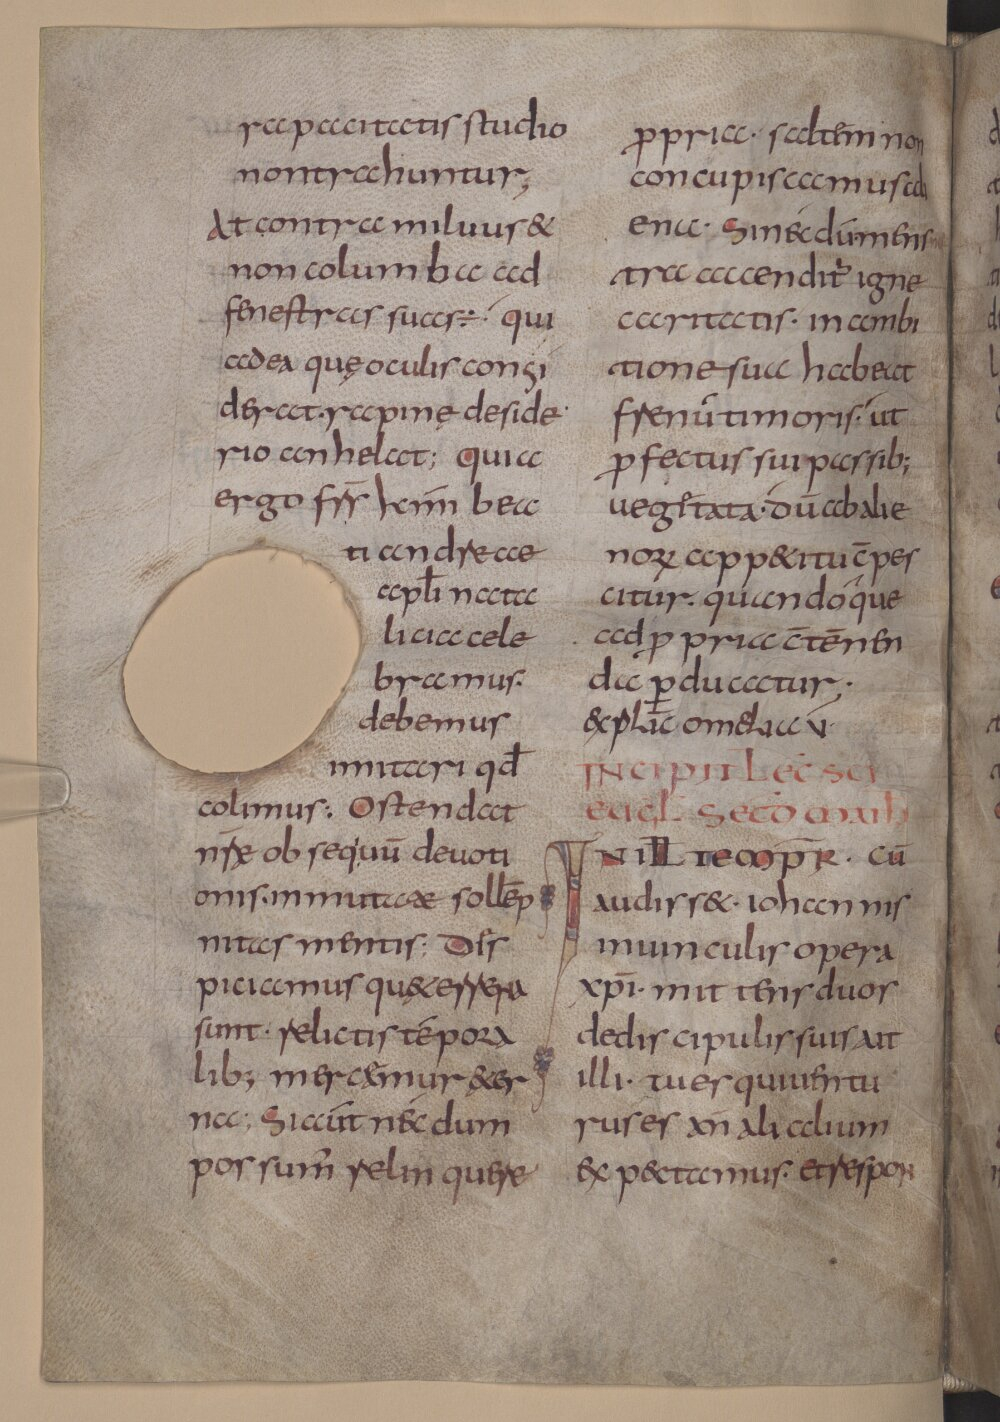 rapacitatis studio
non trahuntur;
At contra miluus &
non columba ad
fenestras suas÷. qui
adea quę oculis consi
derat. rapinę deside
rio anhelat; Quia
ergo frs̄ kmı̄ bea
ti andreae
apłi natta
licia cele
bramus.
debemus
imitari qd̄
colimus; Ostendat
nr̄ae ob sequiū deuoti
onis. inmutatae sollēp
nitas mentis; Dēs
piciamus quae terrena
sunt. relictis tēpora
lib; mercem̄ur aeter
na; Si aūt nēc dum
possum̄ relinquere
ꝓpria. saltem non
concupiscamus ali
ena. Si nēc dum mens nr̄a
accendit̄ igne
caritatis. in ambi
tione sua habeat
frenū timoris. ut
ꝓfectus sui passib;
uegetata. dū ab alie
norꝝ app&itu cōpes
citur. quandoq̄ue
ad ꝓpria c̄tēnen
da ꝑducatur;
explic̄ omelia v
INCIPIT LEC̄ SC̄I
EUGL SECD̄ MATH
IN ILL TEMPR̄. Cū
audiss&. iohannis
inuinculis opera
xpı̄. mittens duos
dediscipulis suis ait
illi. tu es qui uentu
rus es an̄ alium
expectamus. et respon